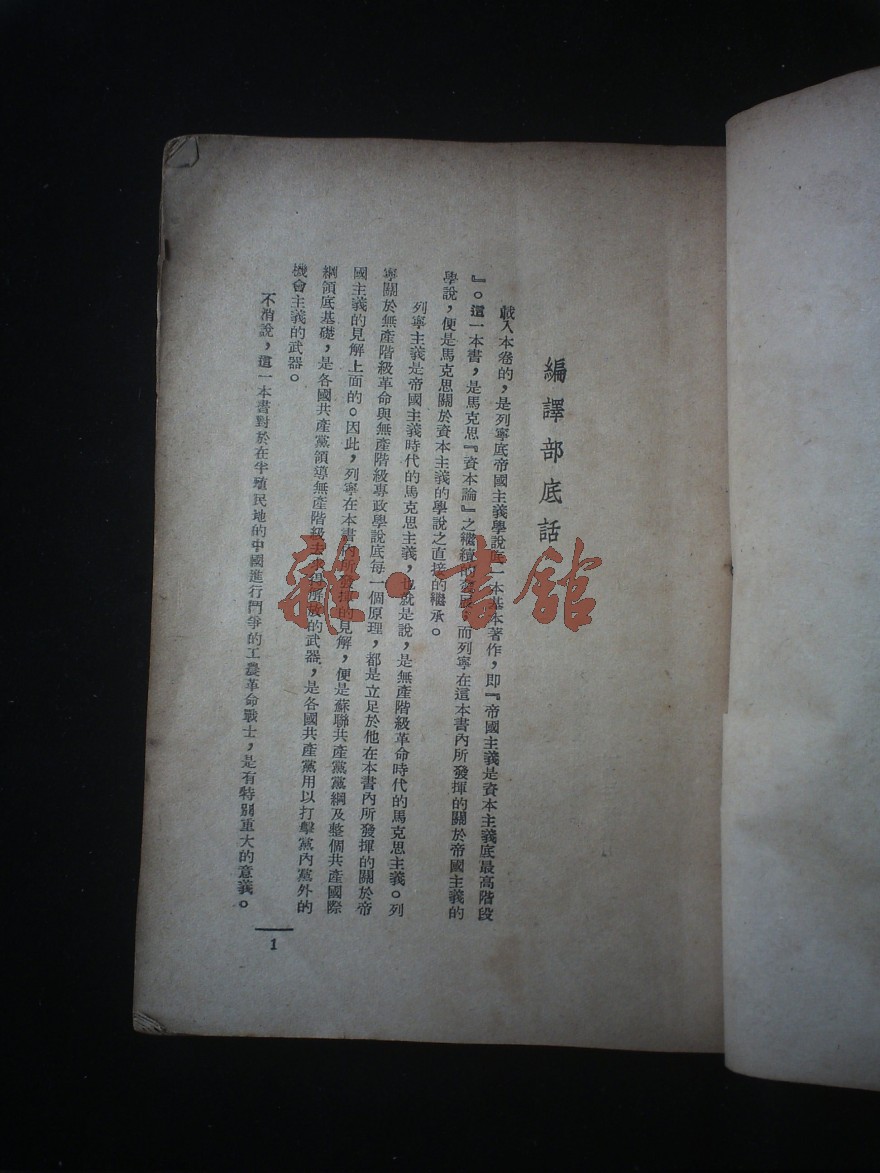 編譯部底話
載入本卷的，是列寧底帝國主義學說底一本基本著作，即『帝國主義是資本主義底最高階段
』。這一本書，是馬克思『資本論』之繼續的發展，而列寧在這本書內所發揮的關於帝國主義的
學說，便是馬克思關於資本主義的學說之直接的繼承。
列寧主義是帝國主義時代的馬克思主義，也就是說，是無產階級革命時代的馬克思主義。列
寧關於無產階級革命與無產階級專政學說底每一個原理，都是立足於他在本書內所發揮的關於帝
國主義的見解上面的。因此，列寧在本書內所發揮的見解，便是蘇聯共產黨黨綱及整個共產國際
綱領底基礎，是各國共產黨領導無產階級去求得解放的武器，是各國共產黨用以打擊黨內黨外的
機會主義的武器。
不消說，這一本書對於在半殖民地的中國進行鬥爭的工農革命戰士，是有特別重大的意義。
1
雜·書館